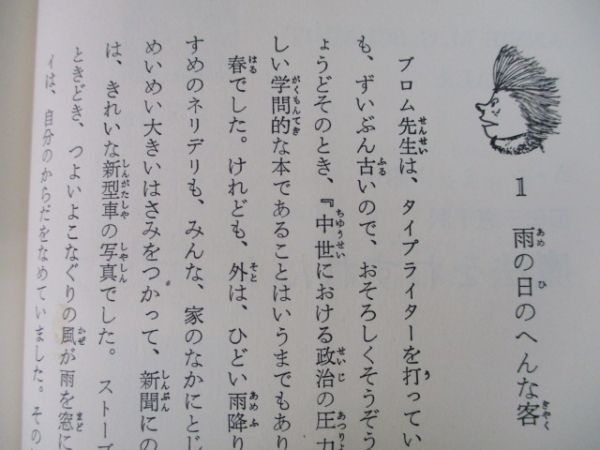 1 雨の日のへんな客
ブロム先生は、タイプライターを打ってい
も、ずいぶん古いので、おそろしくそうぞう
ょうどそのとき、『中世における政治の圧力
しい学問的な本であることはいうまでもあり
春でした。けれども、外は、ひどい雨降り
すめのネリデリも、みんな、家のなかにとじ
めいめい大きいはさみをつかって、新聞にの
は、きれいな新型車の写真でした。ストーブ
ときどき、つよいよこなぐりの風が雨を窓に
ィは、自分のからだをなめていました。その